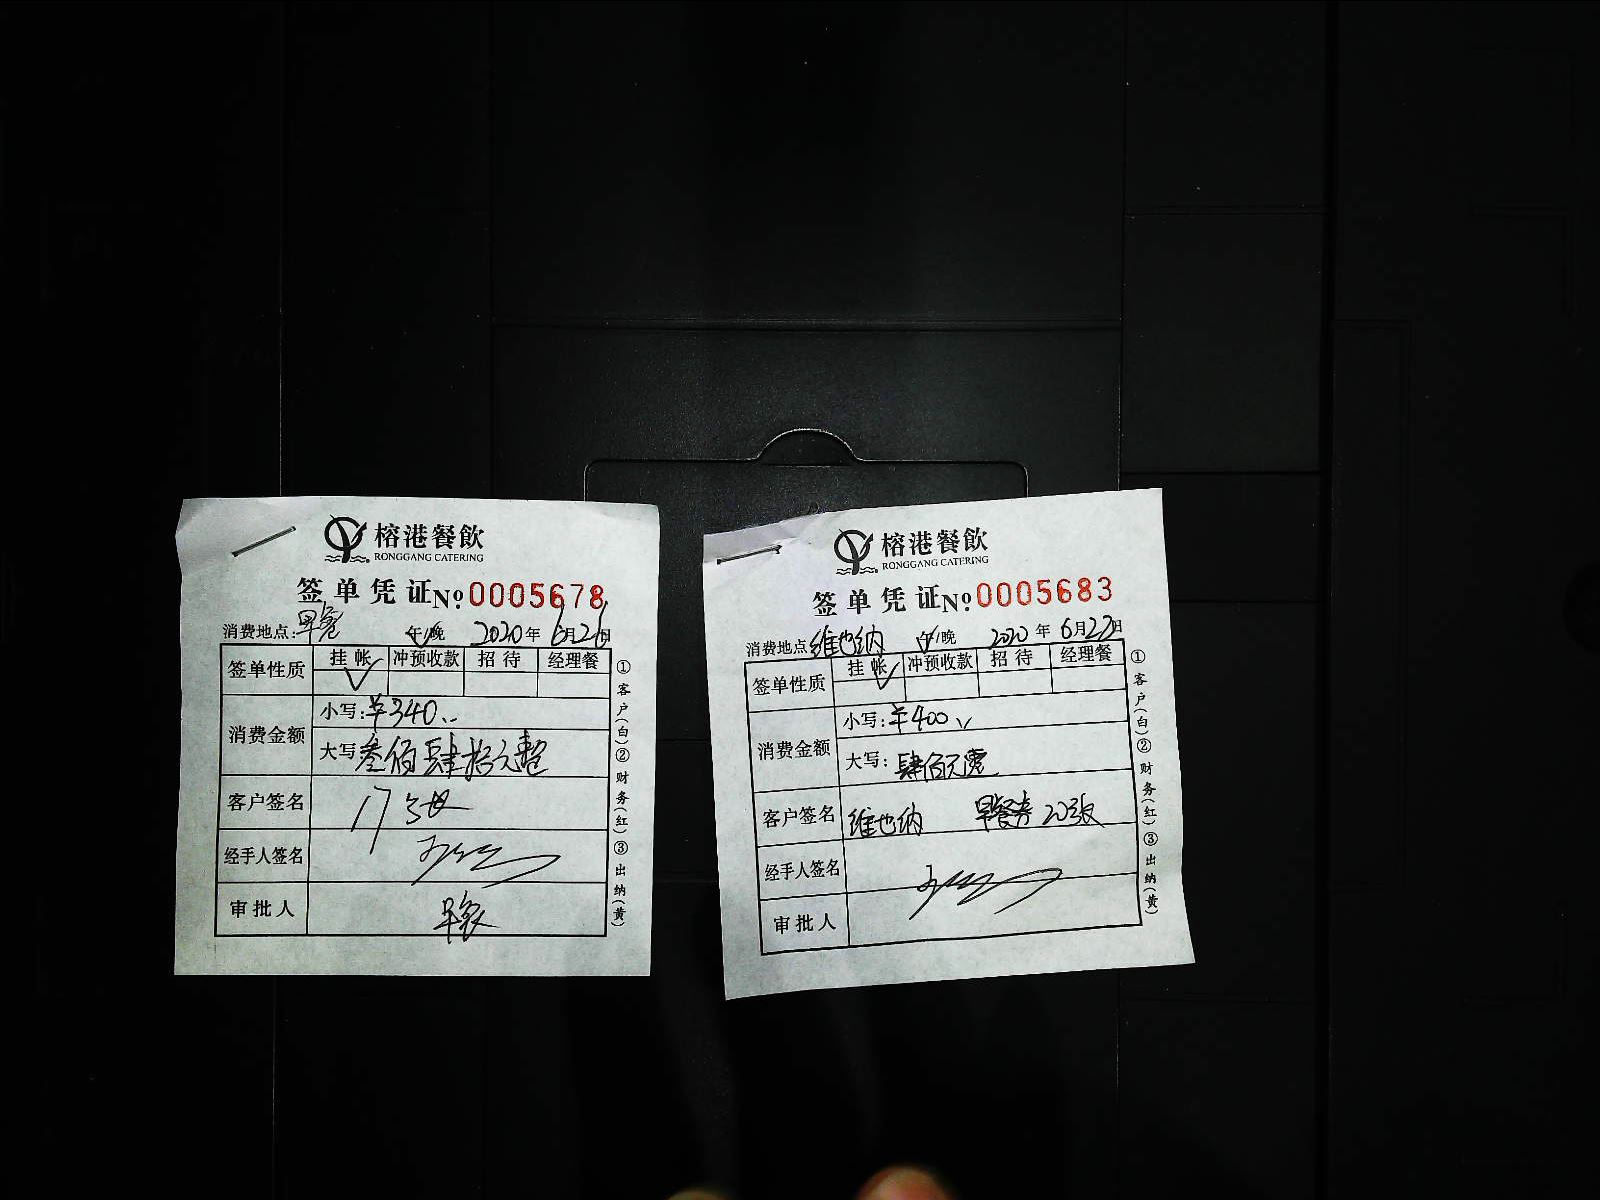 榕港餐飲
RONGGANG CATERING
签单凭证 № 0005678
消费地点: 早餐 午/晚 2020年 6月26日
签单性质 挂帐 冲预收款 招待 经理餐
消费金额
小写: ¥340
大写 叁佰肆拾元整
客户签名
经手人签名
审批人
①客户(白)②财务(红)③出纳(黄)
榕港餐飲
RONGGANG CATERING
签单凭证 № 0005683
消费地点: 维也纳 午/晚 2020年 6月27日
签单性质 挂帐 冲预收款 招待 经理餐
消费金额
小写: ¥400
大写: 肆佰元整
客户签名 维也纳 早餐券20张
经手人签名
审批人
①客户(白)②财务(红)③出纳(黄)